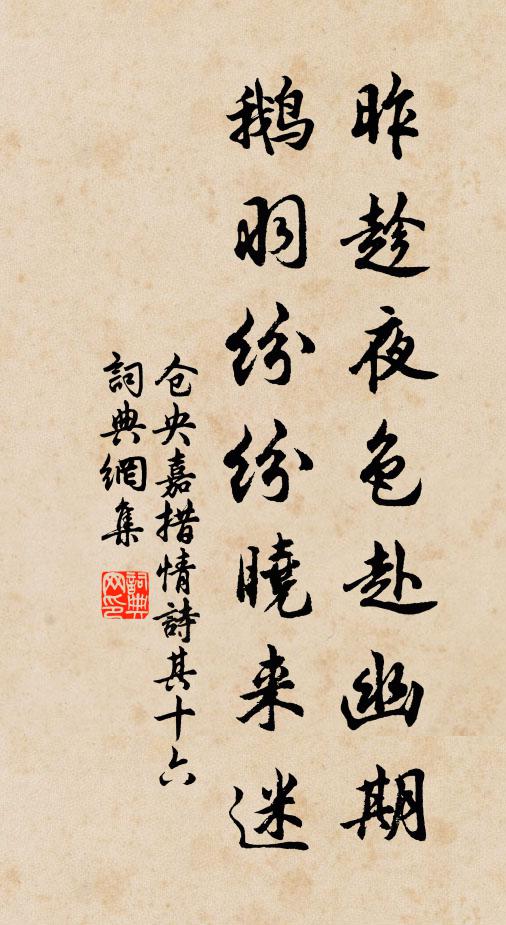 昨趁夜色赴幽期
鵝羽紛紛曉来迷
仓央嘉措情詩其十六
詞典網集
詞典网印